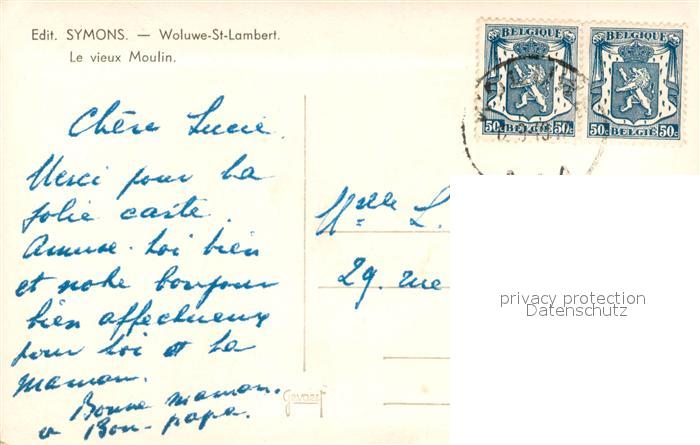 Edit. SYMONS. — Woluwe-St-Lambert.
Le vieux Moulin.
BELGIQUE
50c BELGIË 50c
BELGIQUE
50c BELGIË 50c
Chère Lucie.
Merci pour ta
jolie carte.
Amuse-toi bien
et notre bonjour
bien affectueux
pour toi et ta
maman.
Bonne maman.
et Bon-papa.
Melle L.
29. rue
Gevaert
privacy protection
Datenschutz